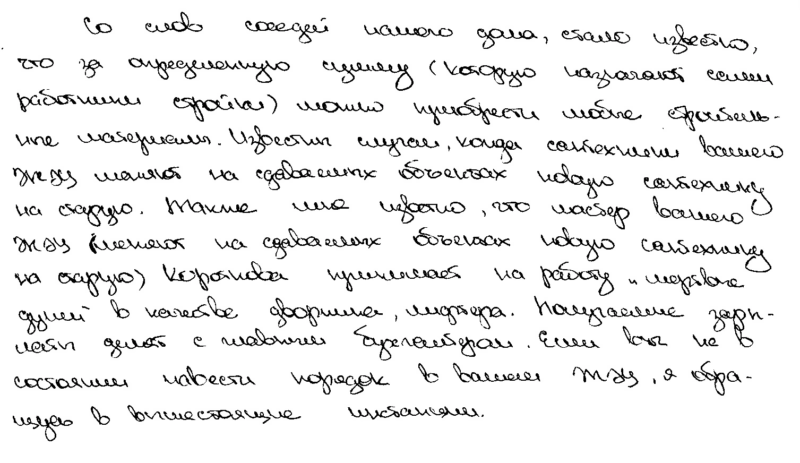 Со слов соседей нашего дома, стало известно,
что за определенную сумму (которую назначают сами
работники стройки) можно приобрести любые строитель-
ные материалы. Известны случаи, когда сантехники вашего
ЖЭЦ меняют на сдаваемых объектах новую сантехнику
на старую. Также мне известно, что мастер вашего
ЖЭЦ (меняют на сдаваемых объектах новую сантехнику
на старую) Коротнова принимает на работу „мертвые
души" в качестве дворника, лифтера. Получаемые зарп-
латы делят с главным бухгалтером. Если вы не в
состоянии навести порядок в вашем ЖЭЦ, я обра-
щусь в вышестоящие инстанции.